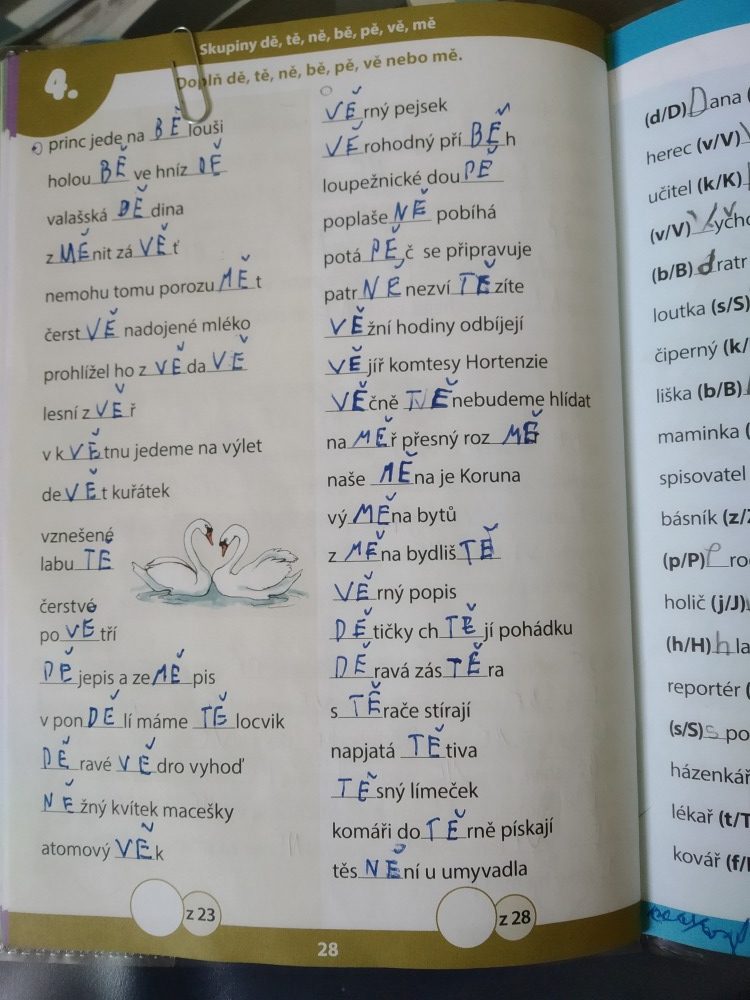 Skupiny dě, tě, ně, bě, pě, vě, mě
4.
Doplň dě, tě, ně, bě, pě, vě nebo mě.
princ jede na BĚlouši
holouBĚ ve hnízDĚ
valašská DĚdina
zMĚnit záVĚť
nemohu tomu porozuMĚt
čerstVĚ nadojené mléko
prohlížel ho zVĚdaVĚ
lesní zVĚř
v kVĚtnu jedeme na výlet
deVĚt kuřátek
vznešené
labuTĚ
čerstvé
poVĚtří
DĚjepis a zeMĚpis
v ponDĚlí máme TĚlocvik
DĚravé VĚdro vyhoď
NĚžný kvítek macešky
atomový VĚk
z 23
VĚrný pejsek
VĚrohodný příBĚh
loupežnické douPĚ
poplašeNĚ pobíhá
potáPĚč se připravuje
patrNĚ nezvíTĚzíte
VĚžní hodiny odbíjejí
VĚjíř komtesy Hortenzie
VĚčně TVĚ nebudeme hlídat
naMĚř přesný rozMĚR
naše MĚna je Koruna
výMĚna bytů
zMĚna bydlišTĚ
VĚrný popis
DĚtičky chTĚjí pohádku
DĚravá zásTĚra
sTĚrače stírají
napjatá TĚtiva
TĚsný límeček
komáři doTĚrně pískají
těsNĚní u umyvadla
z 28
28
(d/D)Dana
herec (v/V)
učitel (k/K)
(v/V)Vycho
(b/B)bratr
loutka (s/S)
čiperný (k/
liška (b/B)
maminka (
spisovatel
básník (z/Z
(p/P)Pro
holič (j/J)
(h/H)hla
reportér (
(s/S)spo
házenkář
lékař (t/T
kovář (f/F